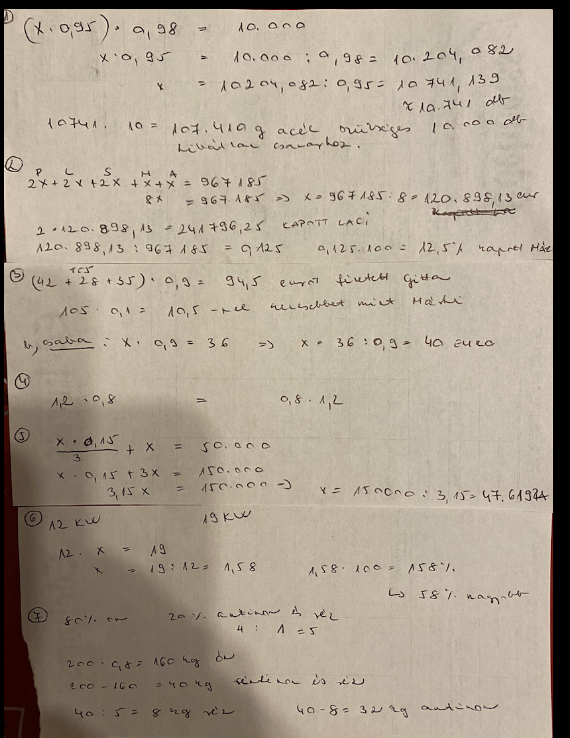 1) (x · 0,95) · 0,98 = 10.000
x · 0,95 = 10.000 : 0,98 = 10.204,082
x = 10204,082 : 0,95 = 10741,139
≈ 10.741 db
10741 · 10 = 107.410 g acél szükséges 10.000 db
hibátlan csavarhoz.
2) P L S H A
2x + 2x + 2x + x + x = 967185
8x = 967.185 => x = 967185 · 8 = 120.898,13 eur
2 · 120.898,13 = 241796,25 KAPOTT LACI
120.898,13 : 967185 = 0,125 0,125 · 100 = 12,5% kapott
3) 105
(42 + 28 + 35) · 0,9 = 94,5 eurót fizetett Gitta
105 · 0,1 = 10,5 kevesebbet mint
b, Csaba : x · 0,9 = 36 => x = 36 : 0,9 = 40 euro
4)
1,2 · 0,8 = 0,8 · 1,2
5) x · 0,15
3 + x = 50.000
x · 0,15 + 3x = 150.000
3,15x = 150.000 -> x = 150000 : 3,15 = 47.619
6) 12 KW 19 KW
12 · x = 19
x = 19 : 12 = 1,58 1,58 · 100 = 158%
↳ 58% nagyobb
7) 80% ón 20% antimon és réz
4 : 1 = 5
200 · 0,8 = 160 kg ón
200 - 160 = 40 kg antimon és réz
40 : 5 = 8 kg réz 40 - 8 = 32 kg antimon